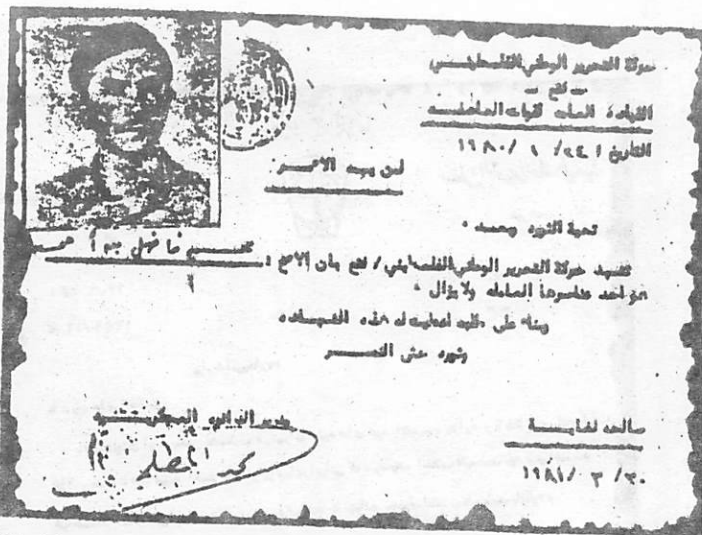 حركة التحرير الوطني الفلسطيني
– فتح –
القيادة العامة لقوات العاصفة
التاريخ ٢٤/ ١ /١٩٨٠
لمن يهمه الامر
تحية الثورة وبعد ،
تشهد حركة التحرير الوطني الفلسطيني / فتح بأن الاخ :
هو أحد عناصرها العاملة ولا يزال .
وبناء على طلبه اعطيت له هذه الشهادة
وثورة حتى النصر
صالحة لغاية
٣٠/ ٣ /١٩٨١